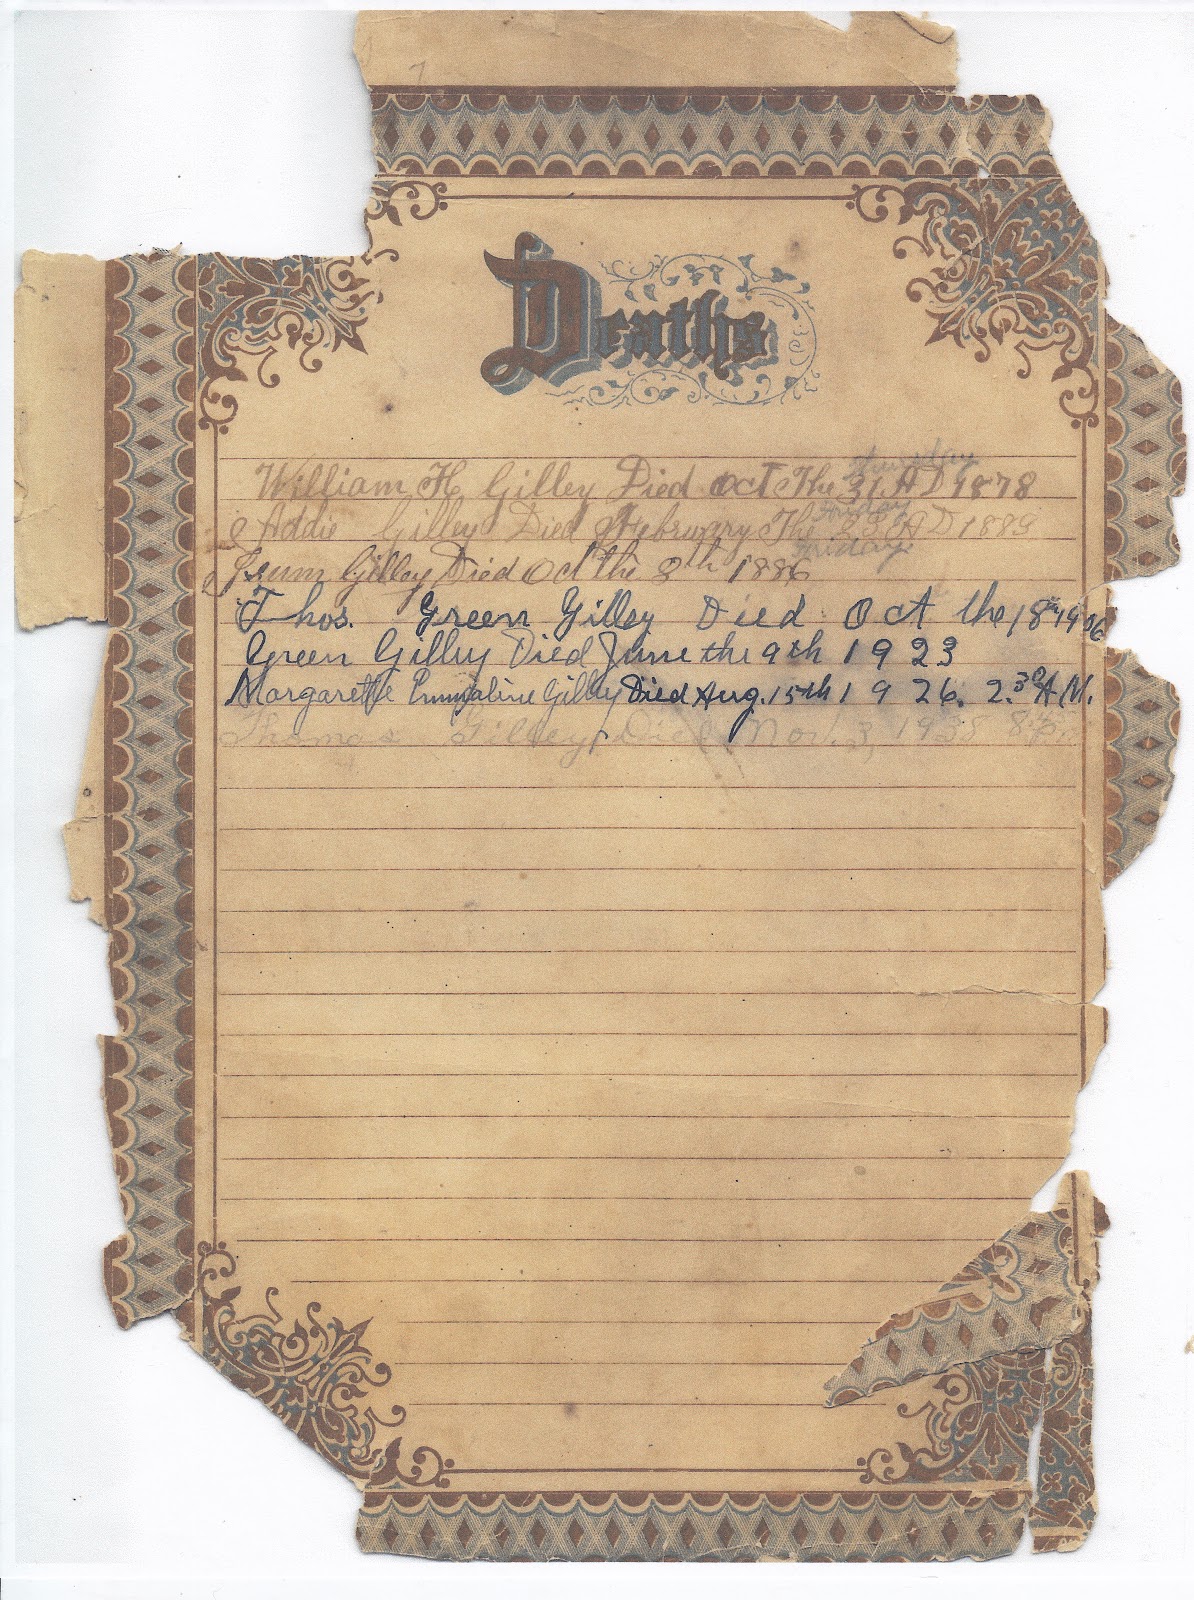 Deaths
Thursday
William H Gilley Died Oct The 31 AD 1878
Friday
Addie Gilley Died February The AD 1889
Friday
Gilley Died Oct the 8th 1886
Thos. Green Gilley Died Oct the 18th 1906
Green Gilley Died June the 9th 1923
Margarette Emmaline Gilley Died Aug. 15th 1926. 2.30 A.M.
Thomas Gilley Died Nov. 3, 1938